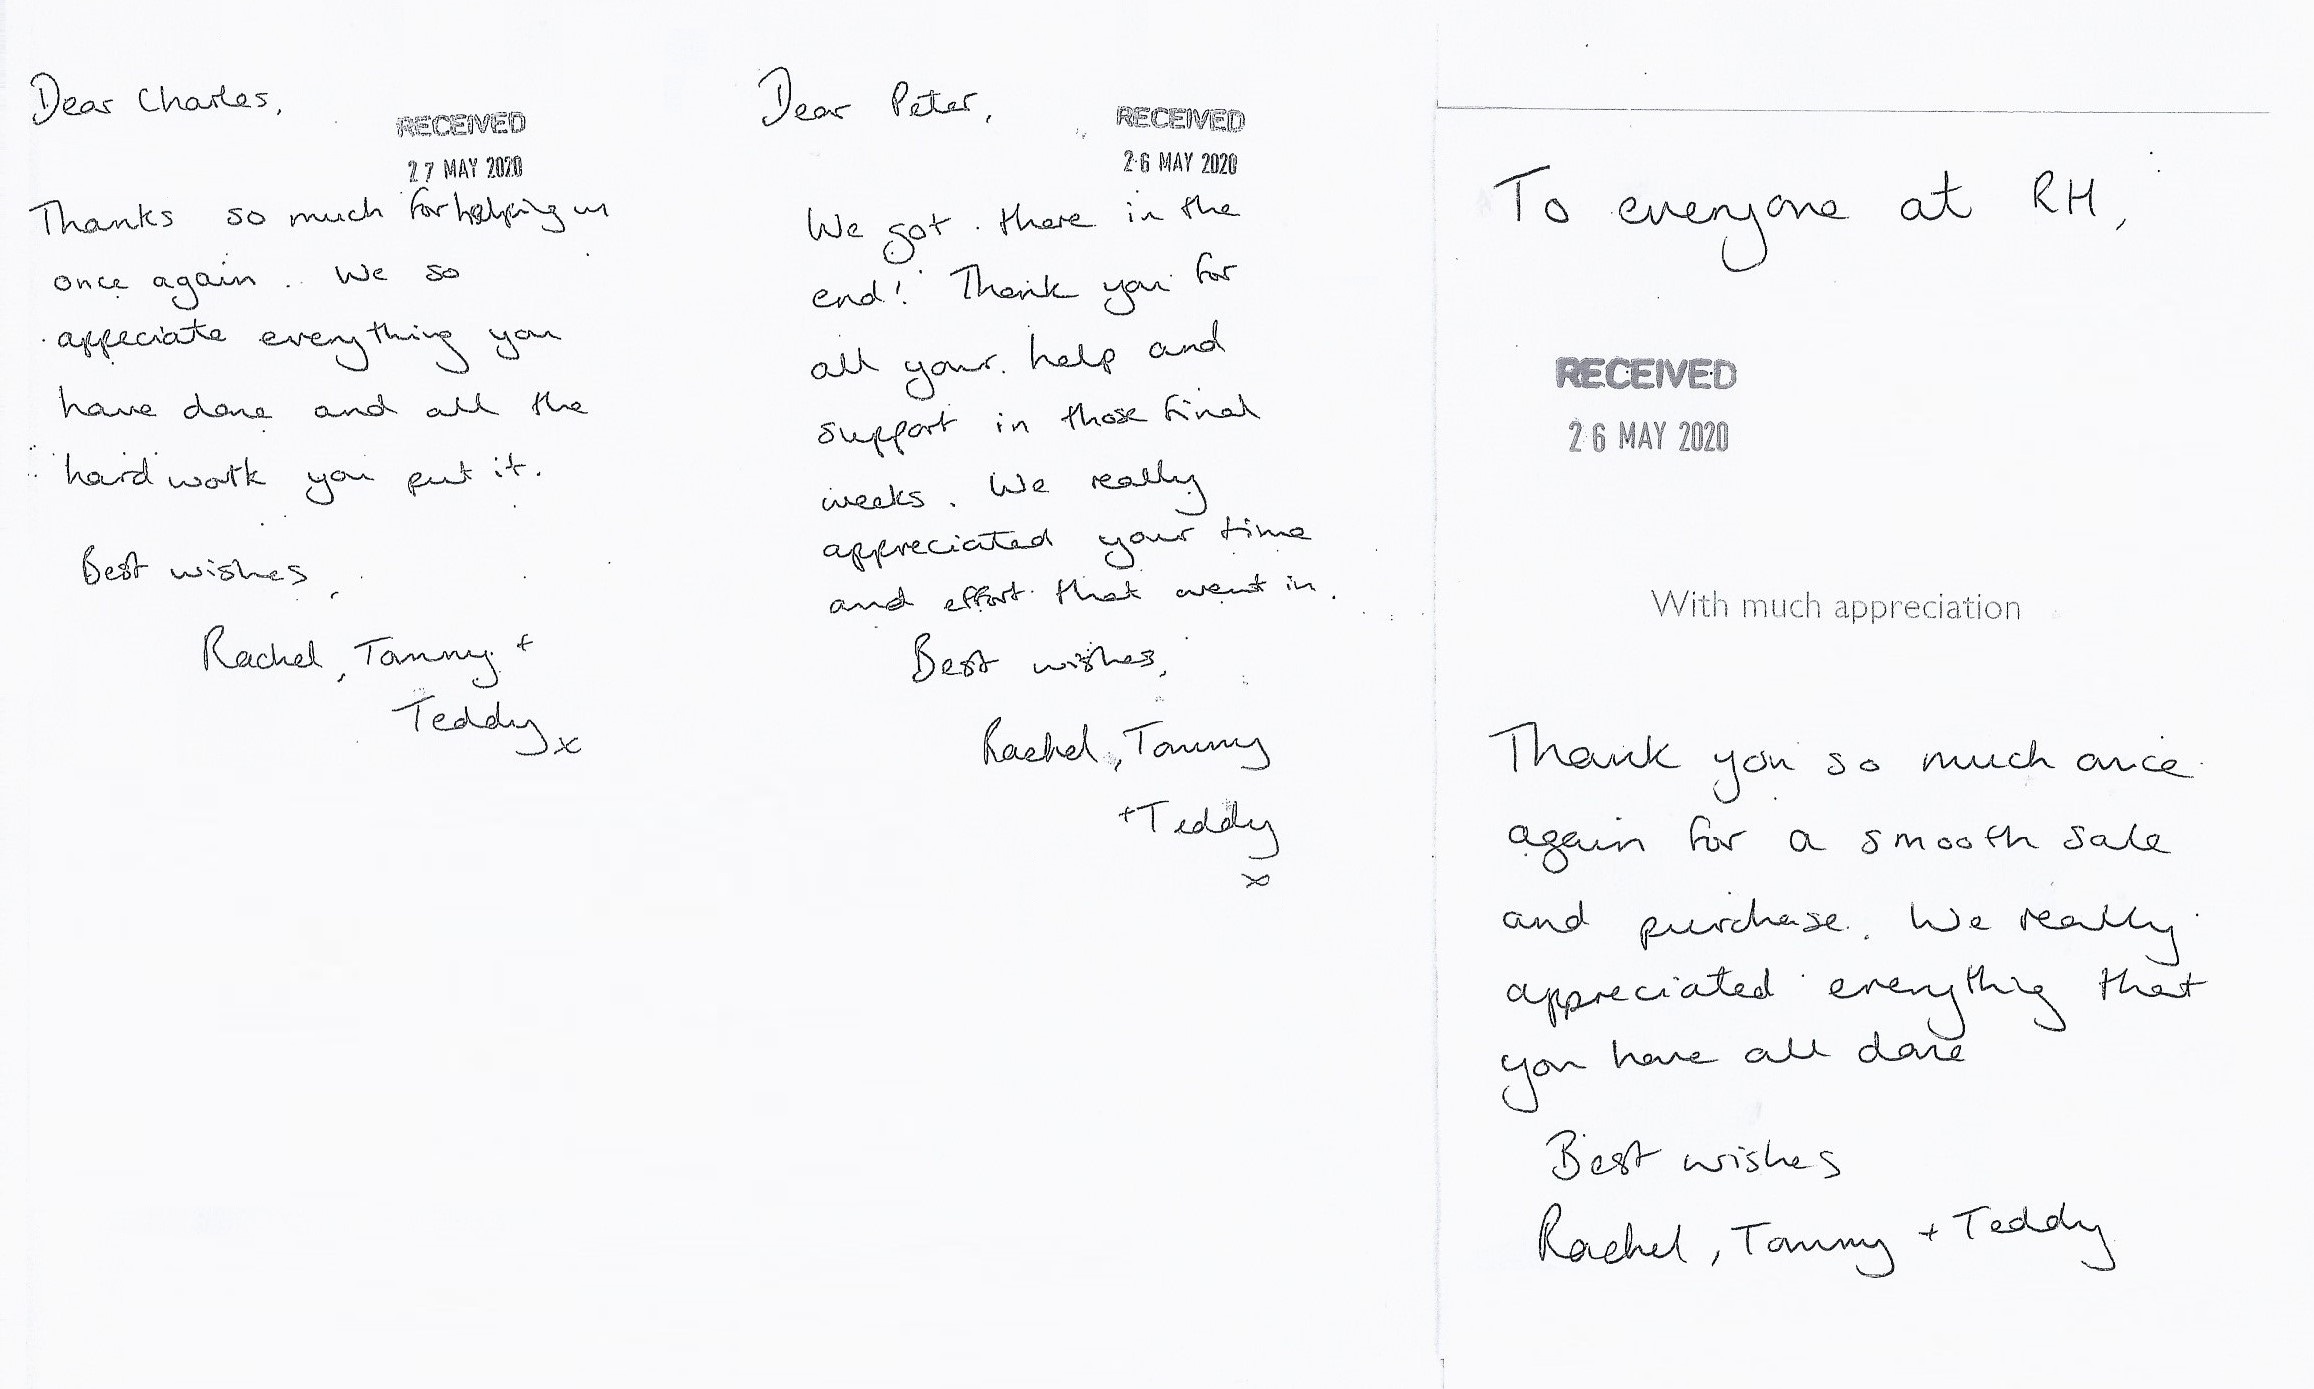 Dear Charles,
RECEIVED
27 MAY 2020
Thanks so much for helping us
once again. We so
appeciate everything you
have done and all the
hard work you put it.
Best wishes,
Rachel, Tommy +
Teddy x
Dear Peter,
RECEIVED
26 MAY 2020
We got there in the
end! Thank you for
all your help and
support in those final
weeks. We really
appreciated your time
and effort that went in.
Best wishes,
Rachel, Tommy
+ Teddy
x
To everyone at RH,
RECEIVED
26 MAY 2020
With much appreciation
Thank you so much once
again for a smooth sale
and purchase. We really
appreciated everything that
you have all done
Best wishes
Rachel, Tommy + Teddy